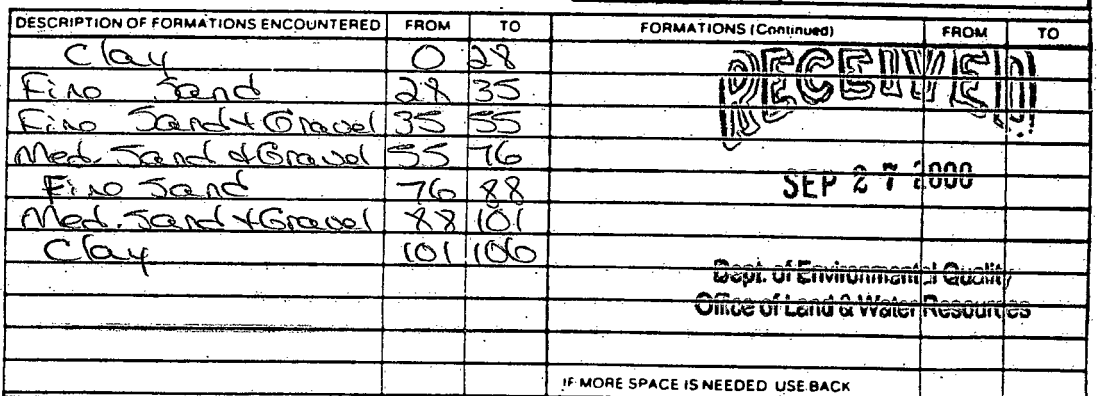 DESCRIPTION OF FORMATIONS ENCOUNTERED FROM TO FORMATIONS (Continued) FROM TO
Clay 0 28
Fine Sand 28 35
Fine Sand & Gravel 35 55
Med. Sand & Gravel 55 76
Fine Sand 76 88
Med. Sand & Gravel 88 101
Clay 101 106
RECEIVED
SEP 27 2000
Dept. of Environmental Quality
Office of Land & Water Resources
IF MORE SPACE IS NEEDED USE BACK